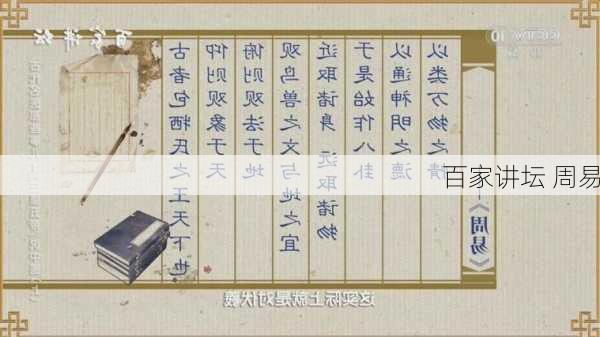 百家讲坛
古者包牺氏之王天下也
仰则观象于天
俯则观法于地
观鸟兽之文与地之宜
近取诸身 远取诸物
于是始作八卦
以通神明之德
以类万物之情
《周易》
百家讲坛 周易
这实际上就是对伏羲
10